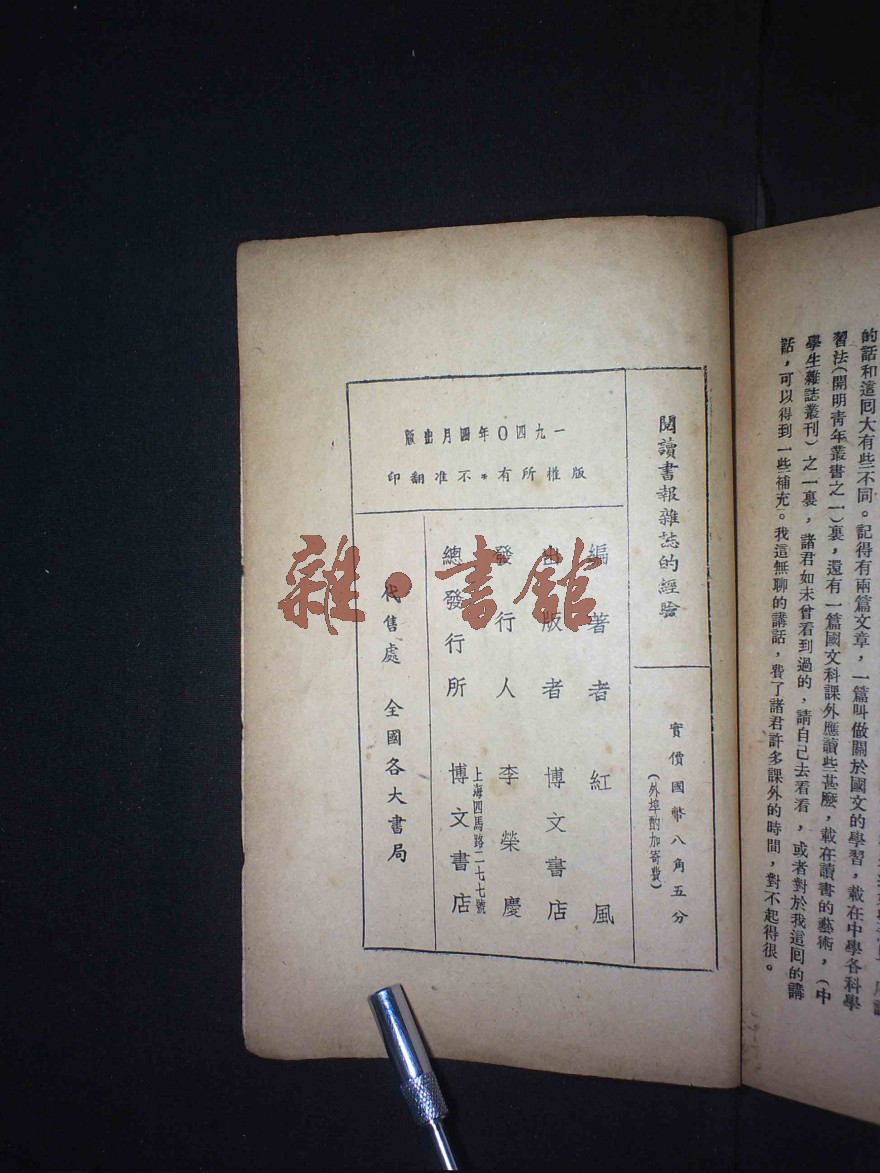 的話和這回大有些不同。記得有兩篇文章，一篇叫做關於國文的學習，載在中學各科學
習法（開明青年叢書之一）裏，還有一篇國文科課外應讀些甚麼，載在讀書的藝術，（中
學生雜誌叢刊）之一裏，諸君如未曾看到過的，請自己去看看，或者對於我這回的講
話，可以得到一些補充。我這無聊的講話，費了諸君許多課外的時間，對不起得很。
閱讀書報雜誌的經驗
實價國幣八角五分
（外埠酌加寄費）
一九四〇年四月出版
版權所有*不准翻印
編著者 紅風
出版者 博文書店
發行人 李榮慶
上海四馬路二七七號
總發行所 博文書店
代售處 全國各大書局
雜·書館